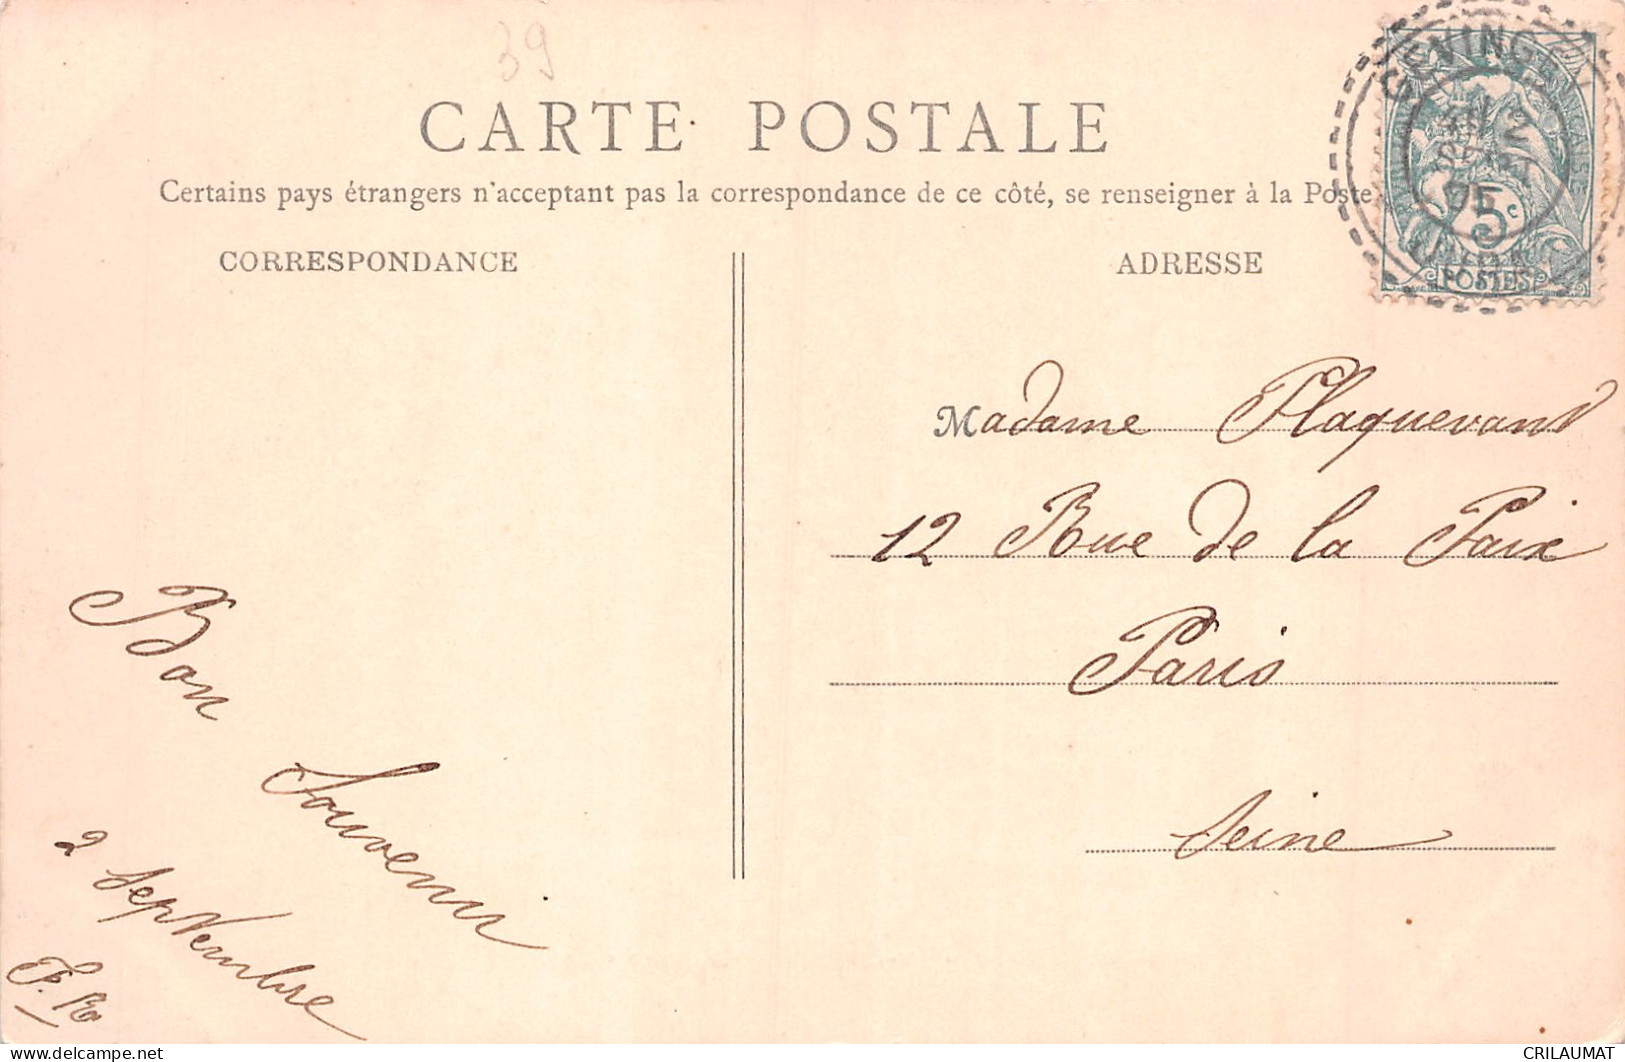 39
CARTE POSTALE
Certains pays étrangers n'acceptant pas la correspondance de ce côté, se renseigner à la Poste
CORRESPONDANCE
ADRESSE
5c
POSTES
Madame Plaquevant
12 Rue de la Paix
Paris
Seine
Bon
Souvenir
2 Septembre
delcampe.net
CRILAUMAT